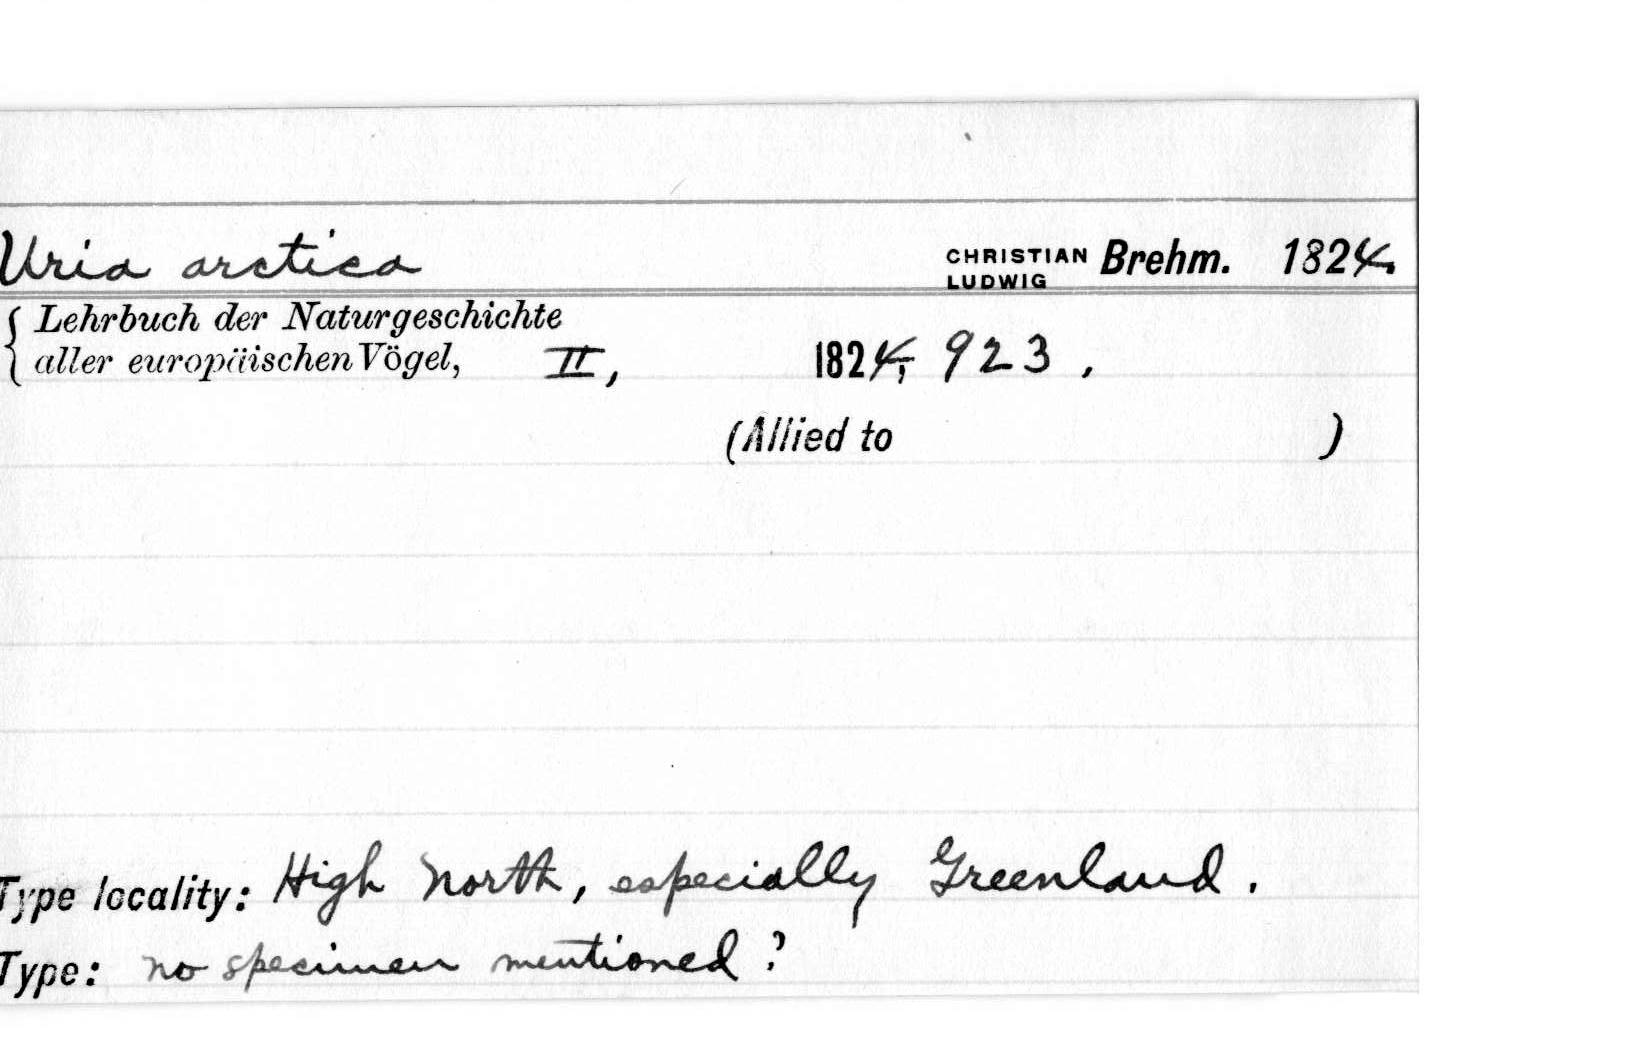 Uria arctica CHRISTIAN LUDWIG Brehm. 1824.
Lehrbuch der Naturgeschichte
aller europäischen Vögel, II, 1824, 923.
(Allied to )
Type locality: High North, especially Greenland.
Type: no specimen mentioned?